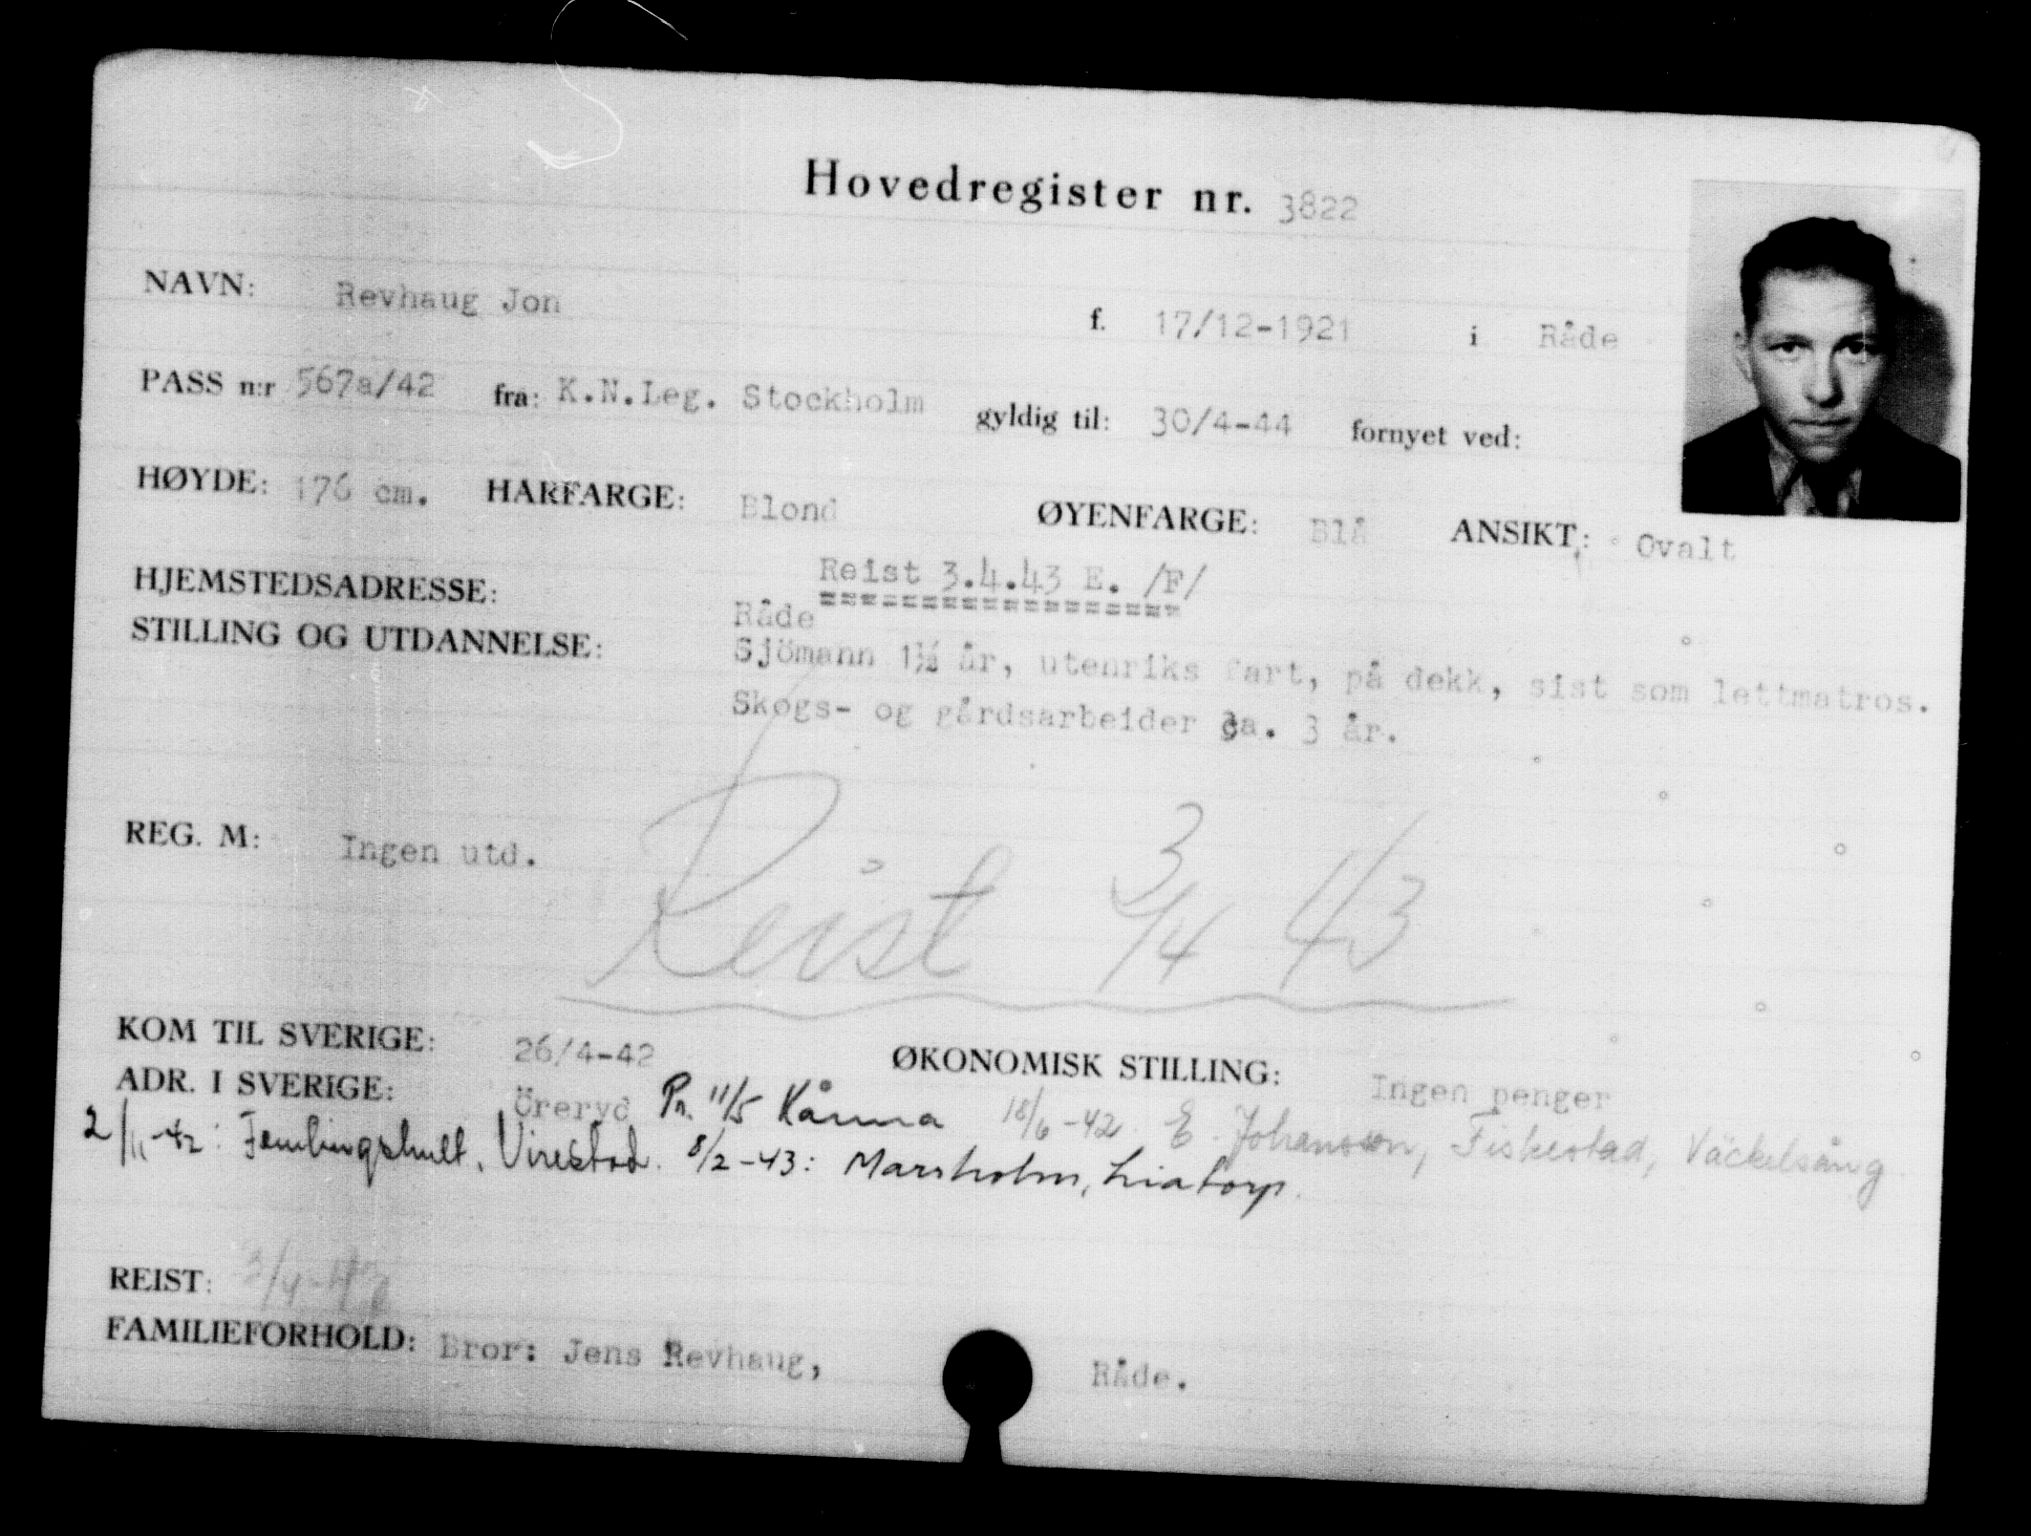 Hovedregister nr. 3822
NAVN: Revhaug Jon f. 17/12-1921 i Råde
PASS n:r 567a/42 fra: K.N.Leg. Stockholm gyldig til: 30/4-44 fornyet ved:
HØYDE: 176 cm. HARFARGE: Blond ØYENFARGE: Blå ANSIKT: Ovalt
Reist 3.4.43 E. /F/
HJEMSTEDSADRESSE: Råde
STILLING OG UTDANNELSE: Sjömann 1½ år, utenriks fart, på dekk, sist som lettmatros.
Skogs- og gårdsarbeider ca. 3 år.
REG. M: Ingen utd.
Reist 3/4 43
KOM TIL SVERIGE: 26/4-42 ØKONOMISK STILLING: Ingen penger
ADR. I SVERIGE: Öreryd Pr. 11/5 Kånna 18/6-42. E. Johansson, Fiskestad, Väckelsång
2/11-42: Femlingshult, Virestad. 8/2-43: Marsholm, Liatorp.
REIST: 3/4-43
FAMILIEFORHOLD: Bror: Jens Revhaug, Råde.